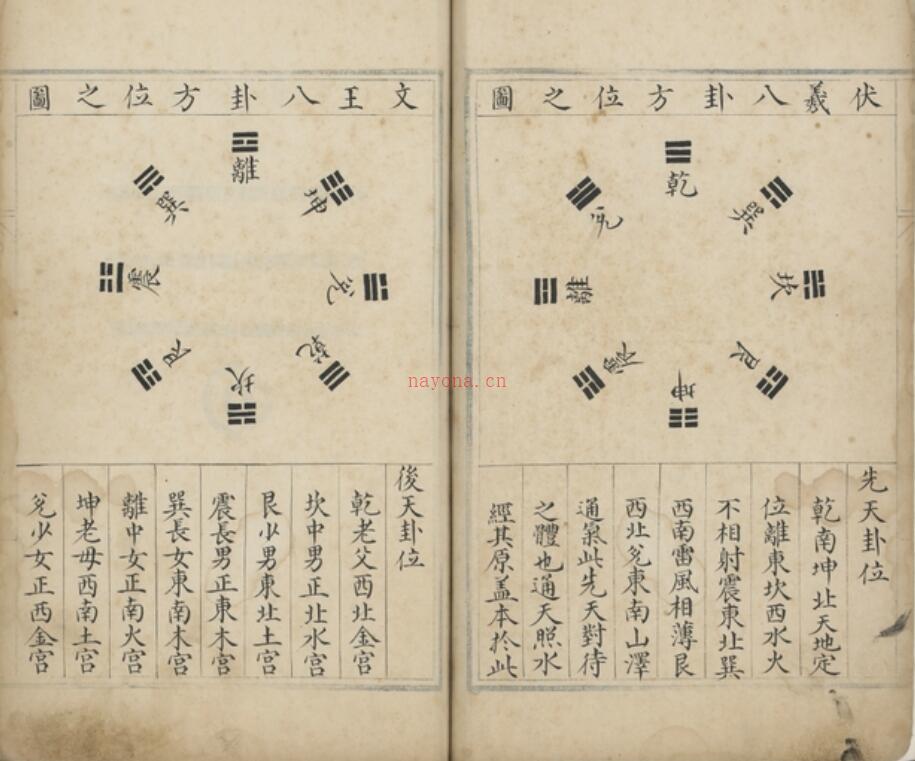 伏羲八卦方位之圖
乾
兌
離
震
巽
坎
艮
坤
先天卦位
乾南坤北天地定
位離東坎西水火
不相射震東北巽
西南雷風相薄艮
西北兌東南山澤
通氣此先天對待
之體也通天照水
經其原盖本於此
文王八卦方位之圖
離
坤
兌
乾
坎
艮
震
巽
後天卦位
乾老父西北金宫
坎中男正北水宫
艮少男東北土宫
震長男正東木宫
巽長女東南木宫
離中女正南火宫
坤老母西南土宫
兌少女正西金宫
nayona.cn